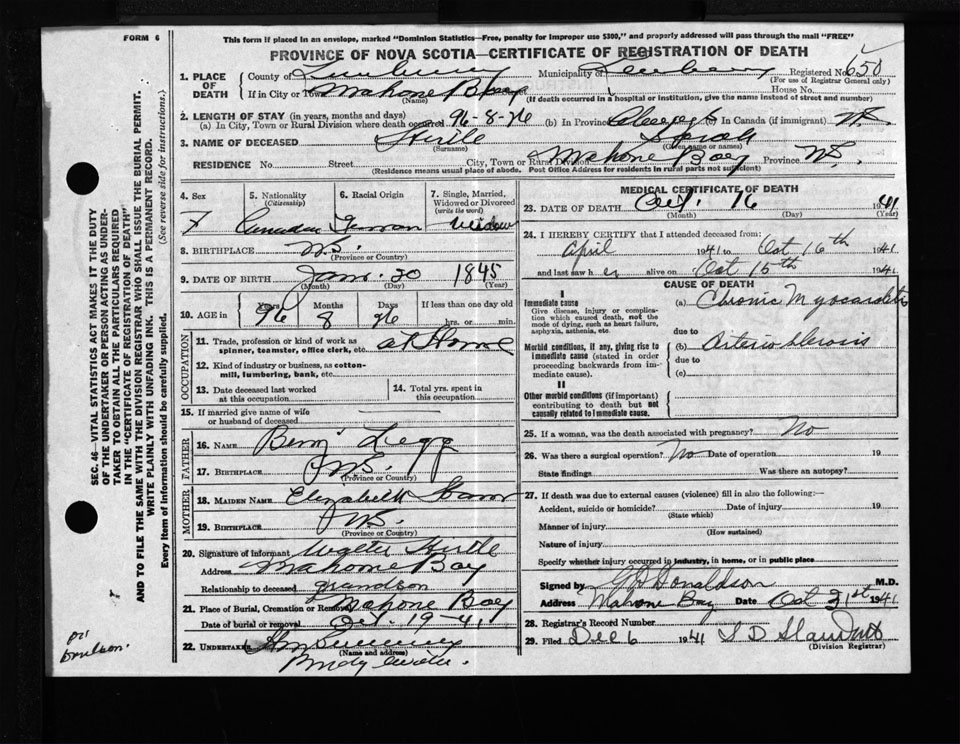 FORM 6
This form if placed in an envelope, marked "Dominion Statistics—Free, penalty for improper use $300," and properly addressed will pass through the mail "FREE"
PROVINCE OF NOVA SCOTIA—CERTIFICATE OF REGISTRATION OF DEATH
1. PLACE OF DEATH County of Lunenburg Municipality of Lunenburg Registered No. 650
(For use of Registrar General only)
If in City or Town Mahone Bay House No.
(Name) (If death occurred in a hospital or institution, give the name instead of street and number)
2. LENGTH OF STAY (in years, months and days)
(a) In City, Town or Rural Division where death occurred 96-8-26 (b) In Province (c) In Canada (if immigrant)
3. NAME OF DECEASED Hirtle Sarah
(Surname) (Given name or names)
RESIDENCE No. Street City, Town or Rural Division Mahone Bay Province N.S.
(Residence means usual place of abode. Post Office Address for residents in rural parts not sufficient)
4. Sex
F
5. Nationality
(Citizenship)
Canadian
6. Racial Origin
German
7. Single, Married, Widowed or Divorced
(write the word)
Widow
8. BIRTHPLACE N.S.
(Province or Country)
9. DATE OF BIRTH Jan. 20 1845
(Month) (Day) (Year)
10. AGE in Years Months Days If less than one day old
96 8 26 hrs. or min.
OCCUPATION
11. Trade, profession or kind of work as spinner, teamster, office clerk, etc. at Home
12. Kind of industry or business, as cotton-mill, lumbering, bank, etc.
13. Date deceased last worked at this occupation
14. Total yrs. spent in this occupation
15. If married give name of wife or husband of deceased
FATHER
16. NAME Benj Zegg
17. BIRTHPLACE N.S.
(Province or Country)
MOTHER
18. MAIDEN NAME Elizabeth
19. BIRTHPLACE N.S.
(Province or Country)
20. Signature of informant Walter Hirtle
Address Mahone Bay
Relationship to deceased grandson
21. Place of Burial, Cremation or Removal Mahone Bay
Date of burial or removal Oct. 19-41
22. UNDERTAKER
(Name and address)
MEDICAL CERTIFICATE OF DEATH
23. DATE OF DEATH Oct. 16 1941
(Month) (Day) (Year)
24. I HEREBY CERTIFY that I attended deceased from:
April 1941 to Oct 16th 1941
and last saw her alive on Oct 15th 1941
CAUSE OF DEATH
I
Immediate cause
Give disease, injury or complication which caused death, not the mode of dying, such as heart failure, asphyxia, asthenia, etc.
(a) Chronic Myocarditis
due to
Morbid conditions, if any, giving rise to immediate cause (stated in order proceeding backwards from immediate cause).
(b) Arterio sclerosis
due to
(c)
II
Other morbid conditions (if important) contributing to death but not causally related to immediate cause.
25. If a woman, was the death associated with pregnancy? No
26. Was there a surgical operation? No Date of operation 19
State findings Was there an autopsy?
27. If death was due to external causes (violence) fill in also the following:—
Accident, suicide or homicide? Date of injury 19
(State which)
Manner of injury
(How sustained)
Nature of injury
Specify whether injury occurred in industry, in home, or in public place
Signed by Donaldson M.D.
Address Mahone Bay Date Oct 21st 1941
28. Registrar's Record Number
29. Filed Dec 6 1941
(Division Registrar)
SEC. 46—VITAL STATISTICS ACT MAKES IT THE DUTY
OF THE UNDERTAKER OR PERSON ACTING AS UNDER-
TAKER TO OBTAIN ALL THE PARTICULARS REQUIRED
IN THE "CERTIFICATE OF REGISTRATION OF DEATH"
AND TO FILE THE SAME WITH THE DIVISION REGISTRAR WHO SHALL ISSUE THE BURIAL PERMIT.
WRITE PLAINLY WITH UNFADING INK. THIS IS A PERMANENT RECORD.
Every item of information should be carefully supplied. (See reverse side for instructions.)